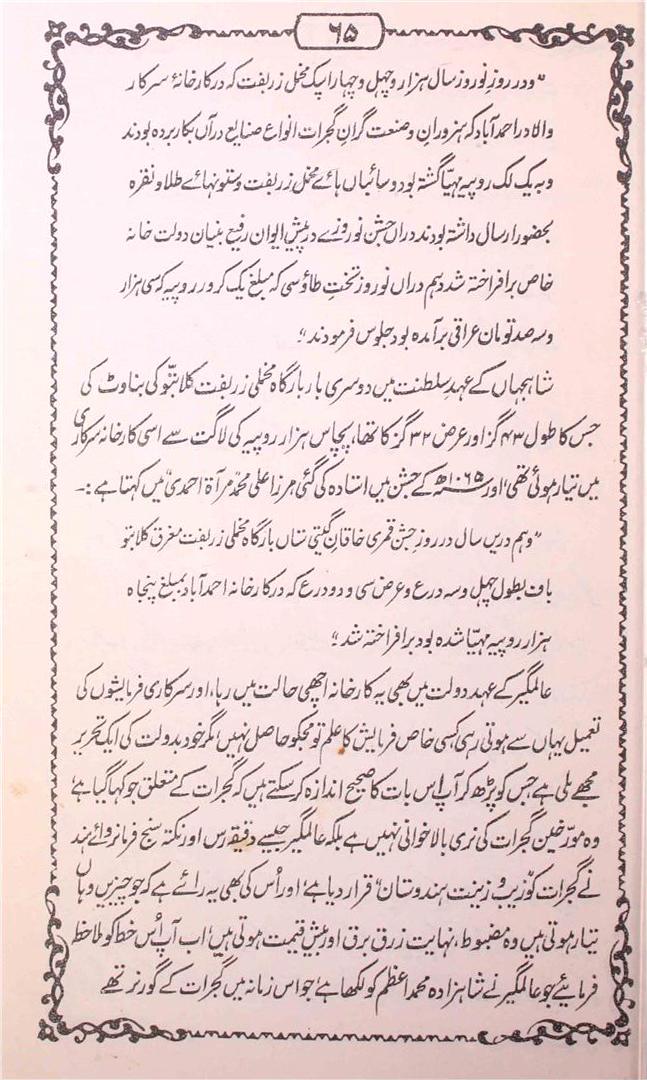 ۶۵
”ودر روزِ نوروز سال ہزار و چہل و چہار اپک مخمل زربفت کہ در کارخانۂ سرکار
والا در احمدآباد کہ ہنروران و صنعت گرانِ گجرات انواع صنایع درآں بکار بردہ بودند
وبہ یک لک روپیہ مہیّا گشتہ بود و سائباں ہائے مخمل زربفت و ستونہائے طلا و نقرہ
بحضور ارسال داشتہ بودند دراں جشن نوروزے در پیش ایوان رفیع بنیان دولت خانہ
خاص برافراختہ شد و ہم دراں نوروز تختِ طاؤسی کہ مبلغ یک کرور روپیہ کہ سی ہزار
وسہ صد تومان عراقی برآمدہ بود جلوس فرمودند“
شاہجہاں کے عہدِ سلطنت میں دوسری بار بارگاہ مخملی زربفت کلابتّو کی بناوٹ کی
جس کا طول ۴۳ گز اور عرض ۳۲ گز کا تھا، پچاس ہزار روپیہ کی لاگت سے اسی کارخانہ سرکاری
میں تیار ہوئی تھی اور ۱۰۶۵ھ کے جشن میں استادہ کی گئی مرزا علی محمد مرآۃ احمدی میں کہتا ہے :۔
”وہم دریں سال در روز جشن قمری خاقان گیتی ستاں بارگاہ مخملی زربفت مغرق کلابتو
باف بطول چہل و سہ درع و عرض سی و دو درع کہ در کارخانہ احمدآباد بمبلغ پنجاہ
ہزار روپیہ مہیّا شدہ بود برافراختہ شد“
عالمگیر کے عہد دولت میں بھی یہ کارخانہ اچھی حالت میں رہا، اور سرکاری فرمایشوں کی
تعمیل یہاں سے ہوتی رہی کسی خاص فرمایش کا علم تو مجکو حاصل نہیں مگر خود بدولت کی ایک تحریر
مجھے ملی ہے جس کو پڑھ کر آپ اس بات کا صحیح اندازہ کر سکتے ہیں کہ گجرات کے متعلق جو کہا گیا ہے
وہ مورّخین گجرات کی نری بالاخوانی نہیں ہے بلکہ عالمگیر جیسے دقیقہ رس اور نکتہ سنج فرمانروائے ہند
نے گجرات کو ”زیب و زینت ہندوستان“ قرار دیا ہے اور اُس کی بھی یہ رائے ہے کہ جو چیزیں وہاں
تیار ہوتی ہیں وہ مضبوط، نہایت زرق برق اور بیش قیمت ہوتی ہیں اب آپ اُس خط کو ملاحظہ
فرمایئے جو عالمگیر نے شاہزادہ محمد اعظم کو لکھا ہے جو اس زمانہ میں گجرات کے گورنر تھے